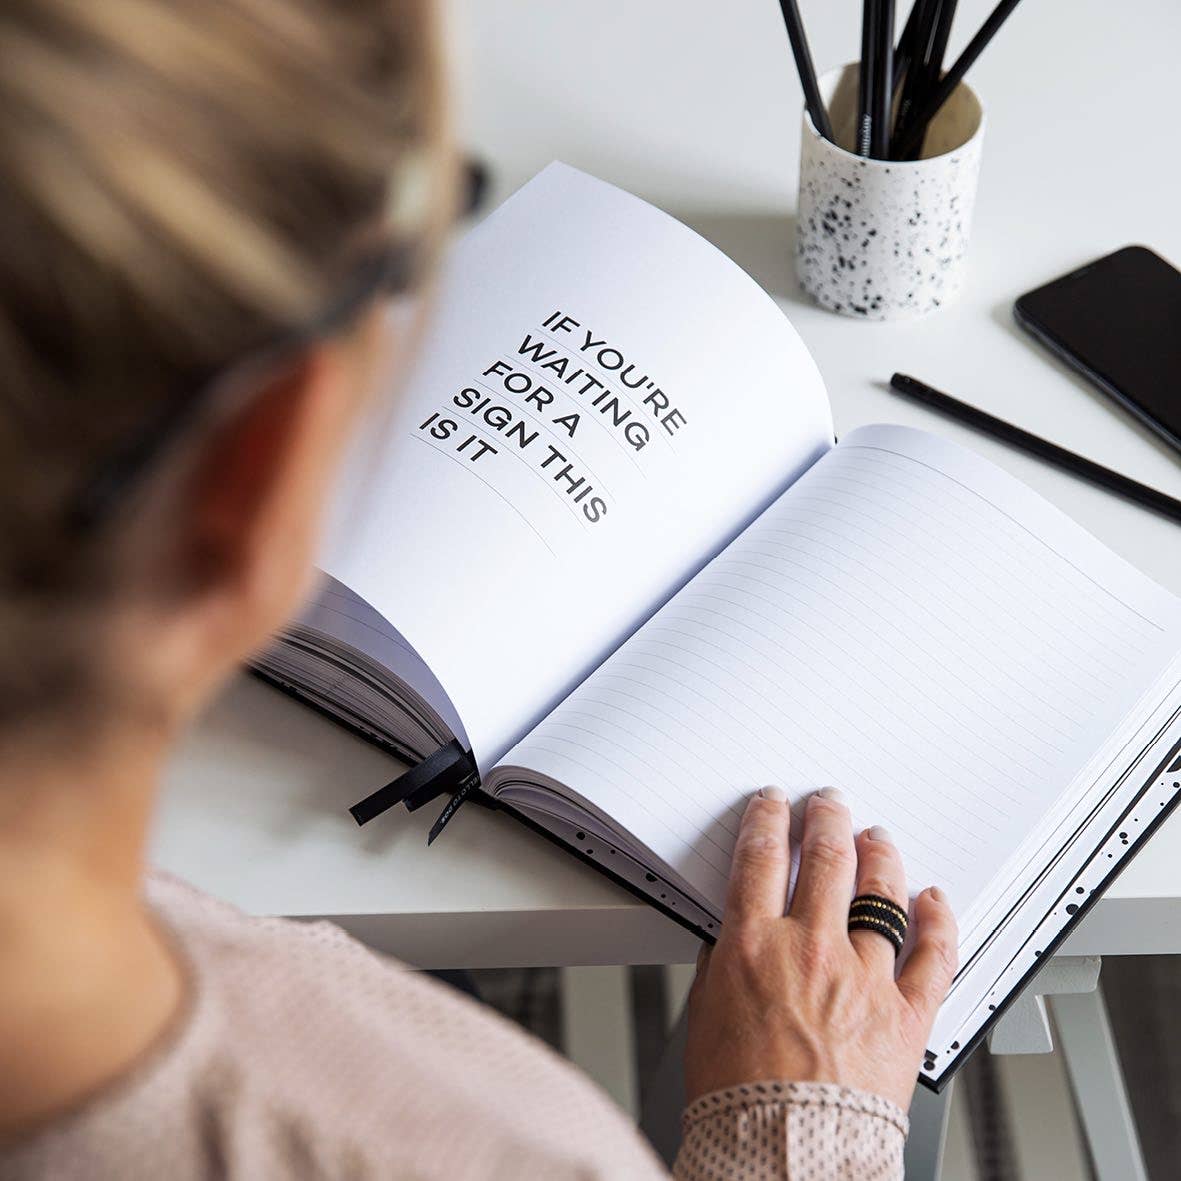 IF YOU'RE
WAITING
FOR A
SIGN THIS
IS IT